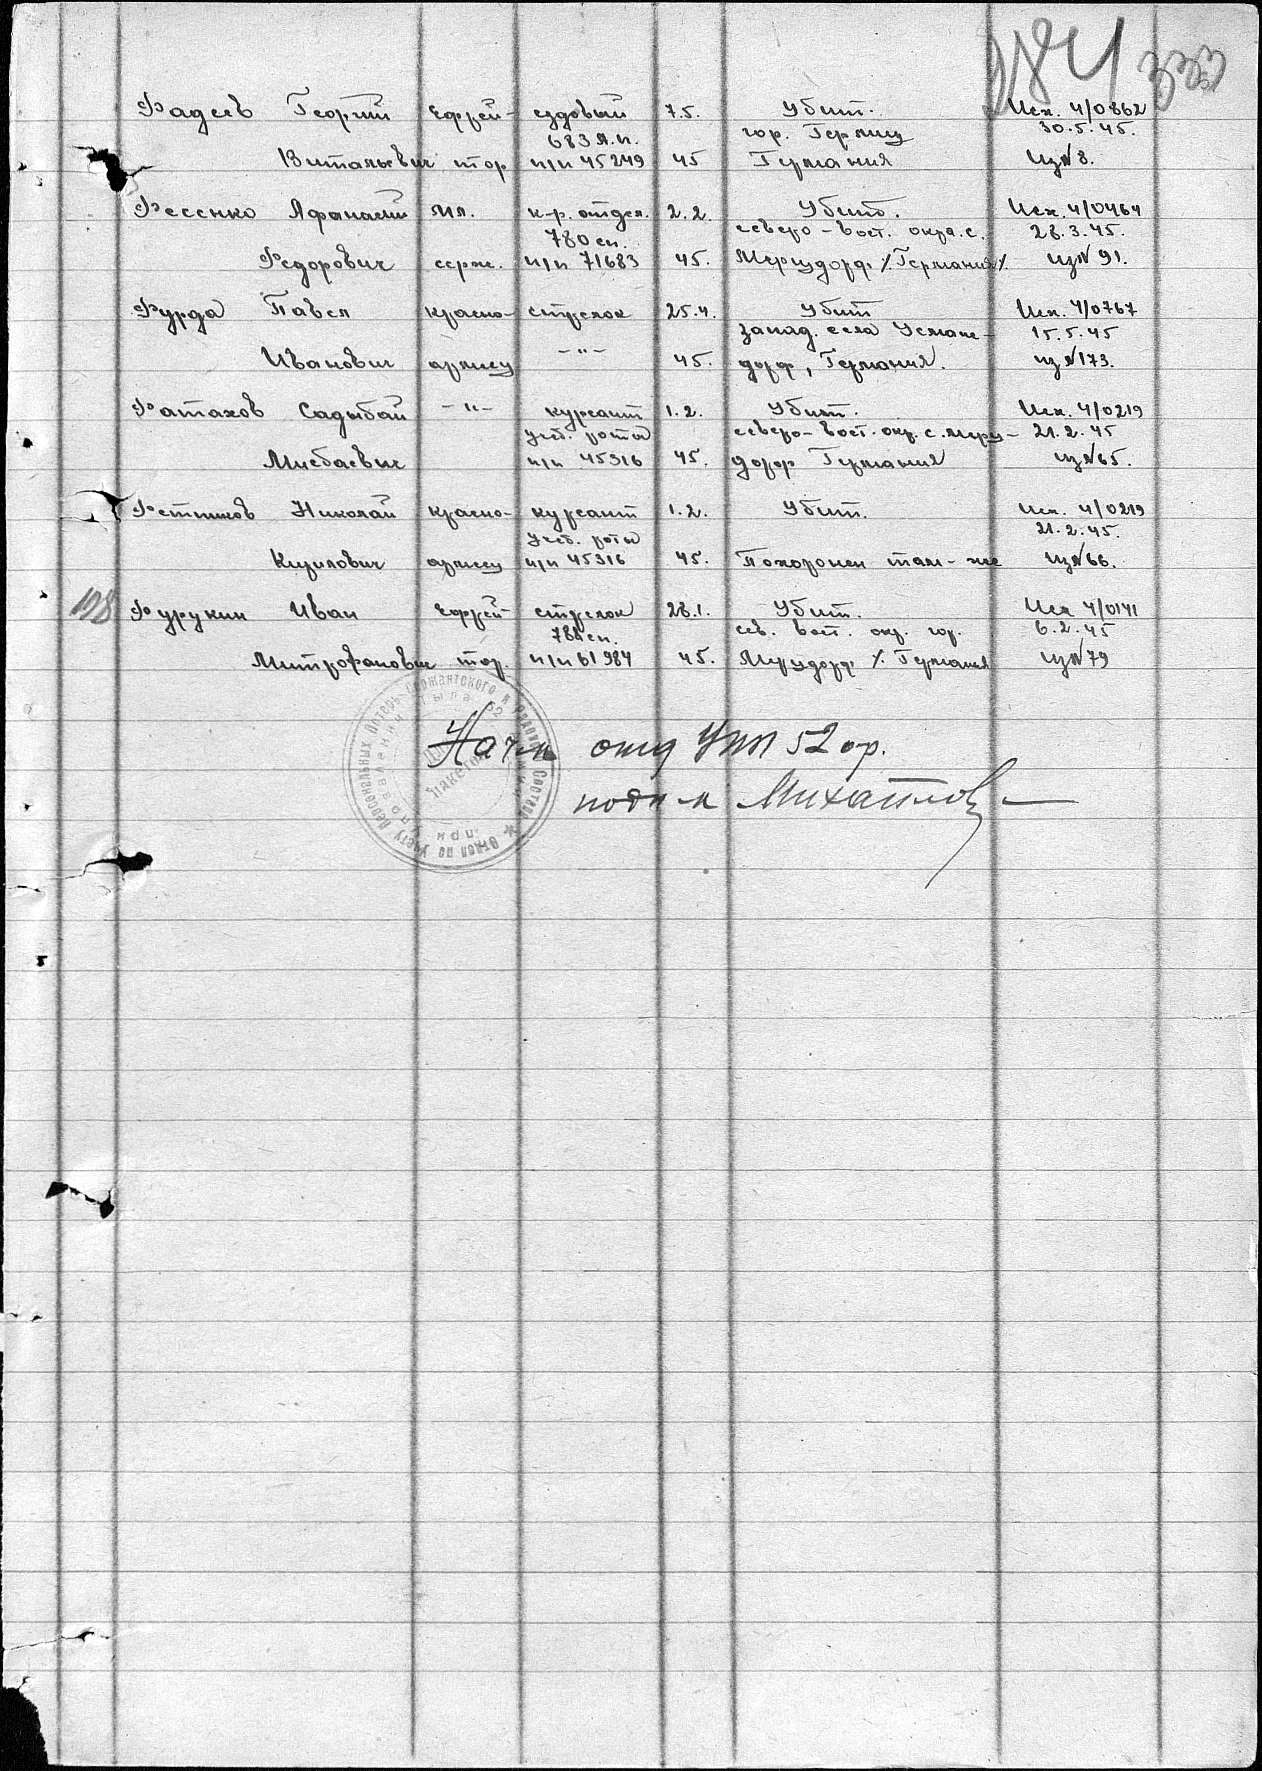 284
Фадеев Георгий ефрей- ездовый 7.5. Убит. Исх. 4/0862
683 А.п. гор. Герлиц 30.5.45.
Витальевич тор п/п 45249 45 Германия Изв№8.
Фесенко Афанасий мл. к-р. отдел. 2.2. Убит. Исх. 4/0464
780 сп. северо-вост. окр. с. 28.3.45.
Федорович серж. п/п 71683 45. Мерцдорф /Германия/. изв№91.
Фурда Павел красно- стрелок 25.4. Убит Исх. 4/0767
запад. села 15.5.45
Иванович армеец -"- 45. дорф, Германия. изв№173.
Фатахов Садыбай -"- курсант 1.2. Убит. Исх. 4/0219
учеб. роты северо-вост. окр. с. Мерц- 21.2.45
Мисбаевич п/п 45316 45. дорф Германия изв№65.
Фетников Николай красно- курсант 1.2. Убит. Исх. 4/0219
учеб. роты 21.2.45.
Кирилович армеец п/п 45316 45. Похоронен там-же изв№66.
198 Фурукин Иван ефрей- стрелок 28.1. Убит. Исх 4/0141
сп. сев. вост. окр. гор. 6.2.45
Митрофанович тор. п/п 61984 45. Мерцдорф /. Германия изв№79
Отдел по учету Персональных Потерь Сержантского и Рядового Состава
при Управлении Тыла 52
Нач-к отд УПП 52 ар.
подп-к Михайлов